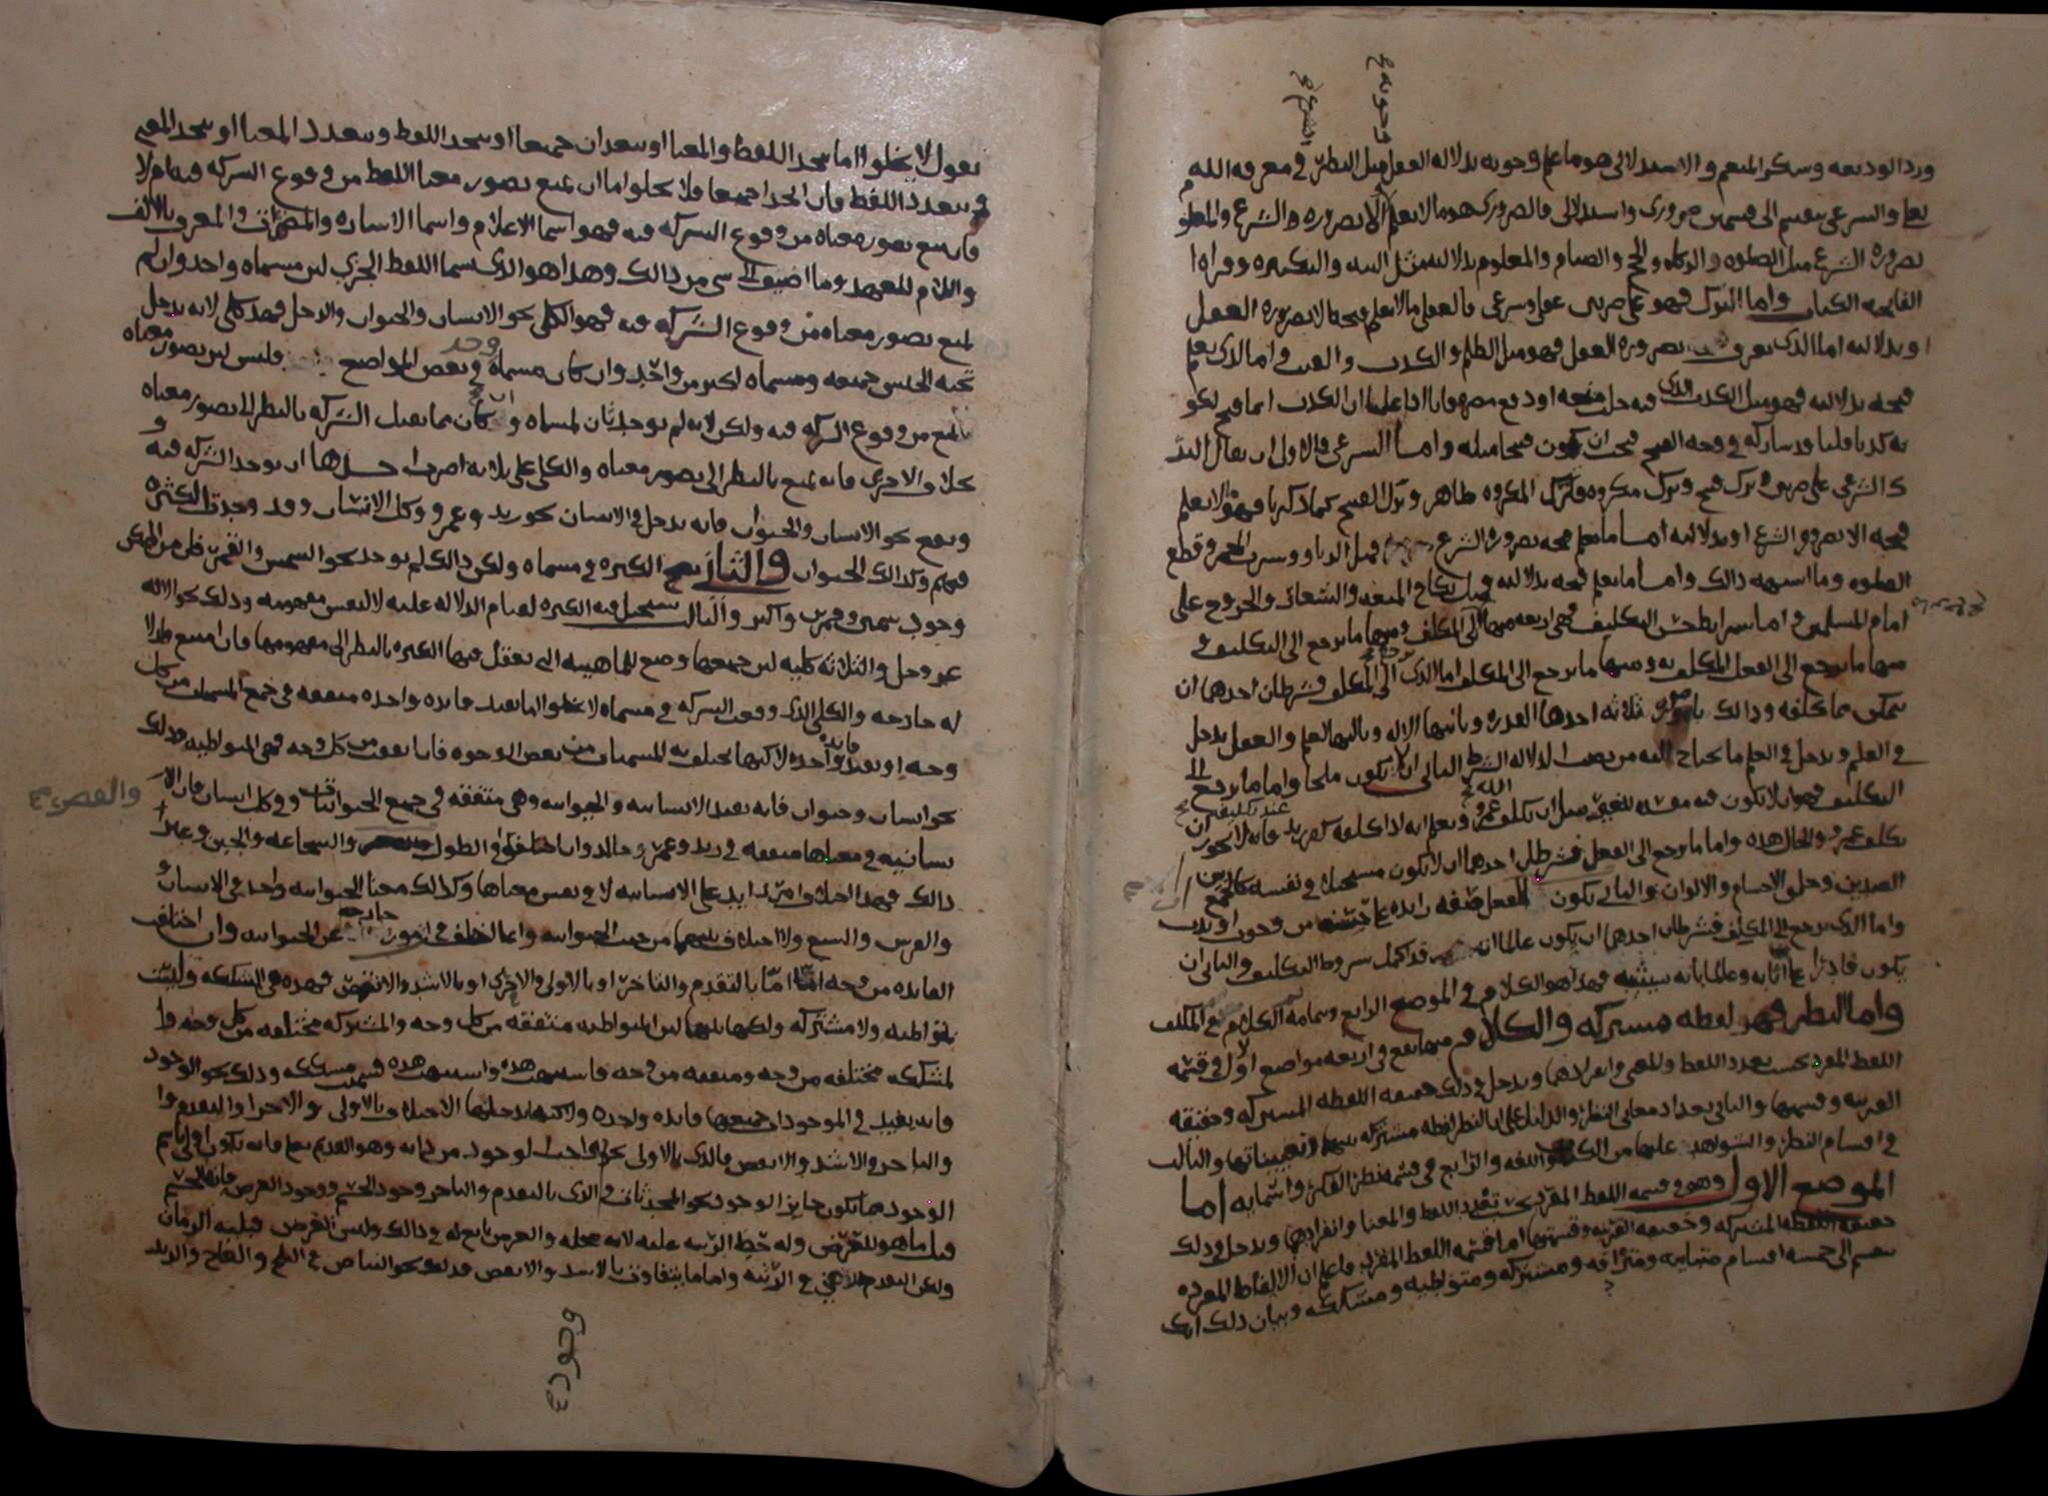 وجوبه
الشرع
ورد الوديعه وشكر المنعم والاستدلالي هو ما علم وجوبه بدلاله العقل مثل النظر في معرفه الله
تعالى والشرعي ينقسم الى قسمين ضروري واستدلالي فالضروري هو ما لا يعلم الا بضروره الشرع والمعلوم
بضروره الشرع مثل الصلوه والزكاه والحج والصيام والمعلوم بدلالته مثل النيه والتكبيره وقراه ا
الفاتحه الكتاب واما الترك فهو على ضربين عقلي وشرعي فالعقلي ما لا يعلم قبحه الا بضروره العقل
او بدلالته اما الذي يعرف بضروره العقل فهو مثل الظلم والكذب والعبث واما الذي يعلم
قبحه بدلالته فهو مثل الكذب الذي فيه جلب منفعه او دفع مضره فانا اذا علمنا ان الكذب انما قبح لكو
نه كذبا قلنا وقد شاركه في وجه القبح فيجب ان يكون قبيحا مثله واما الشرعي فالاولى ان يقال التر
ك الشرعي على ضربين ترك قبح وترك مكروه فترك المكروه ظاهر وترك القبيح كما ذكرنا فهو ما لا يعلم
قبحه الا بضروره الشرع او بدلالته اما ما يعلم قبحه بضروره الشرع فمثل الزنا وشرب الخمر وقطع
الصلوه وما اشبهه ذالك واما ما يعلم قبحه بدلالته فمثل نكاح المتعه والشغار والخروج على
امام المسلمين واما شرايط حسن التكليف فهي اربعه منها الى المكلف ومنها ما يرجع الى التكليف و
منها ما يرجع الى الفعل المكلف به ومنها ما يرجع الى المكلف اما الذي يرجع الى المكلف فشرطان احدهما ان
يتمكن مما كلفه وذالك بامور ثلاثه احدها القدره وثانيها الاله وثالثها العلم والعقل يدخل
في العلم ويدخل في العلم ما يحتاج اليه من نصب الدلاله الشرط الثاني ان لا يكون ملجا واما ما يرجع الى
التكليف فهو ان لا يكون فيه مفسده للغير مثل ان يكلف الله عمرو ويعلم انه اذا كلفه كفر زيد عند تكليفه فانه لا يجوز ان
يكلف عمرو والحال هذه واما ما يرجع الى الفعل فشرطان احدهما ان لا يكون مستحيلا في نفسه كالجمع بين
الضدين وخلق الاجسام والالوان والثاني يكون للفعل صفه زايده على حسنه من وجوب او ندب
واما الذي يرجع الى المكلف فشرطان احدهما ان يكون عالما انه قد اكمل شروط التكليف والثاني ان
يكون قادرا على اثابه وعالما بانه سيثيبه فهذا هو الكلام في الموضع الرابع وبتمامه تم الكلام في المكلف
واما النظر فهو لفظه مشتركه والكلام منها يقع في اربعه مواضع الاول في قسمه
اللفظ المفرد بحسب تعدد اللفظ والمعنى وانفرادهما ويدخل في ذلك حقيقه اللفظه المشتركه وحقيقه
القرينه وقسمتها والثاني تعداد معاني النظر والدليل على ان النظر لفظه مشتركه بينها وتعييناتها والثالث
في اقسام النظر والشواهد عليها من الكتاب واللغه والرابع في قسمه نظر الفكر واسمايه اما
الموضع الاول وهو في قسمه اللفظ المفرد بحسب تعدد اللفظ والمعنا وانفرادهما ويدخل في ذلك
حقيقه اللفظه المشتركه وحقيقه القرينه وقسمتها اما قسمه اللفظ المفرد فاعلم ان الالفاظ المفرده
تنقسم الى خمسه اقسام متباينه ومترادفه ومشتركه ومتواطيه ومشككه وبيان ذلك انك
تقول لا يخلوا اما يتحد اللفظ والمعنا او يتعددان جميعا او يتحد اللفظ ويتعدد المعنا او يتحد المعنى
ويتعدد اللفظ فان اتحدا جميعا فلا يخلوا اما ان يمنع تصور معنا اللفظ من وقوع الشركه فيه ام لا
فان منع تصور معناه من وقوع الشركه فيه فهو اسما الاعلام واسما الاشاره والمضمرات والمعرف بالالف
واللام للعهد وما اضيف الى شي من ذالك وهذا هو الذي يسما اللفظ الجزي لان مسماه واحد وان لم
يمنع تصور معناه من وقوع الشركه فيه فهو الكلي نحو الانسان والحيوان والرجل فهذ كلي لانه يدخل
تحته الجنس جميعه ومسماه اكثر من واحد وان كان مسماه في بعض المواضع واحد فليس لان تصور معناه
يمنع من وقوع الشركه فيه ولكن لانه لم يوجد ثان لمسماه وان كان مما يقبل الشركه بالنظر الى تصور معناه
بخلاف الاجزي فانه يمنع بالنظر الى تصور معناه والكلي على ثلاثه اضرب احدها ان توجد الشركه فيه و
وتقع نحو الانسان والحيوان فانه يدخل في الانسان نحو زيد وعمرو وكل الانسان وقد وجدت الكثره
فيهم وكذالك الحيوان والثاني تصح الكثره في مسماه ولكن ذالك لم يوجد نحو الشمس والقمر فان من الممكن
وجود شمسين وقمرين واكثر والثالث يستحيل فيه الكثره لقيام الدلاله عليه لا لنفس مفهومه وذلك نحو الاله
عز وجل والثلاثه كليه لان جميعها وضع للماهيه التي تعقل فيها الكثره بالنظر الى مفهومها فان امتنع فلدلا
له خارجه والكلي الذي وقعت الشركه في مسماه لا يخلوا اما يفيد فايده واحده متفقه في جميع المسميات من كل
وجه او يفيد فايده واحده لا كنها تختلف به المسميات من بعض الوجوه فان اتفقت من كل وجه فهي المتواطيه وذلك
نحو انسان وحيوان فانه يفيد الانسانيه والحيوانيه وهي متفقه في جميع الحيوانات وفي كل انسان فان الا
نسانيه في معناها متفقه في زيد وعمرو وخالد وان اختلفوا في الطول والقصر والشجاعه والجبن وغير
ذالك فهذا اختلاف امر زايد على الانسانيه لا في نفس معناها وكذالك معنا الحيوانيه واحد في الانسان و
والفرس والسبع ولا اختلاف بينهما من حيث الحيوانيه وانما اختلف في امور خارجه عن الحيوانيه وان اختلف
الفايده من وجه اما بالتقدم والتاخر او بالاولى والاحرى او بالاشد والانقص فهذه هي المشككه وليست
بمتواطيه ولا مشتركه ولكنها بينهما لان المتواطيه متفقه من كل وجه والمشتركه مختلفه من كل وجه وا
لمشككه مختلفه من وجه ومتفقه من وجه فاشبهت هذه واشبهت هذه فسميت مشككه وذلك نحو الوجود
فانه يفيد في الموجودات جميعها فايده واحده ولا كنها يدخلها الاختلاف بالاولى والاحرا والتقدم وا
والتاخر والاشد والانقص فالذي بالاولى نحو واجب الوجود من ذاته وهو القديم تعالى فانه يكون اولى باسم
الوجود مما يكون جايز الوجود نحو المحدثات والذي بالتقدم والتاخر وجود الجسم ووجود العرض فان الجسم
قبل ما هو للعرض وله حظ الرتبه عليه لانه محله والعرض تابع له في ذالك وليس الغرض قبليه الزمان
ولكن التقدم هذا هي في الرتبه واما ما يتفاوت بالاشد والانقص فذلك نحو البياض في الثلج والعاج والزبد
والقصر
وجود